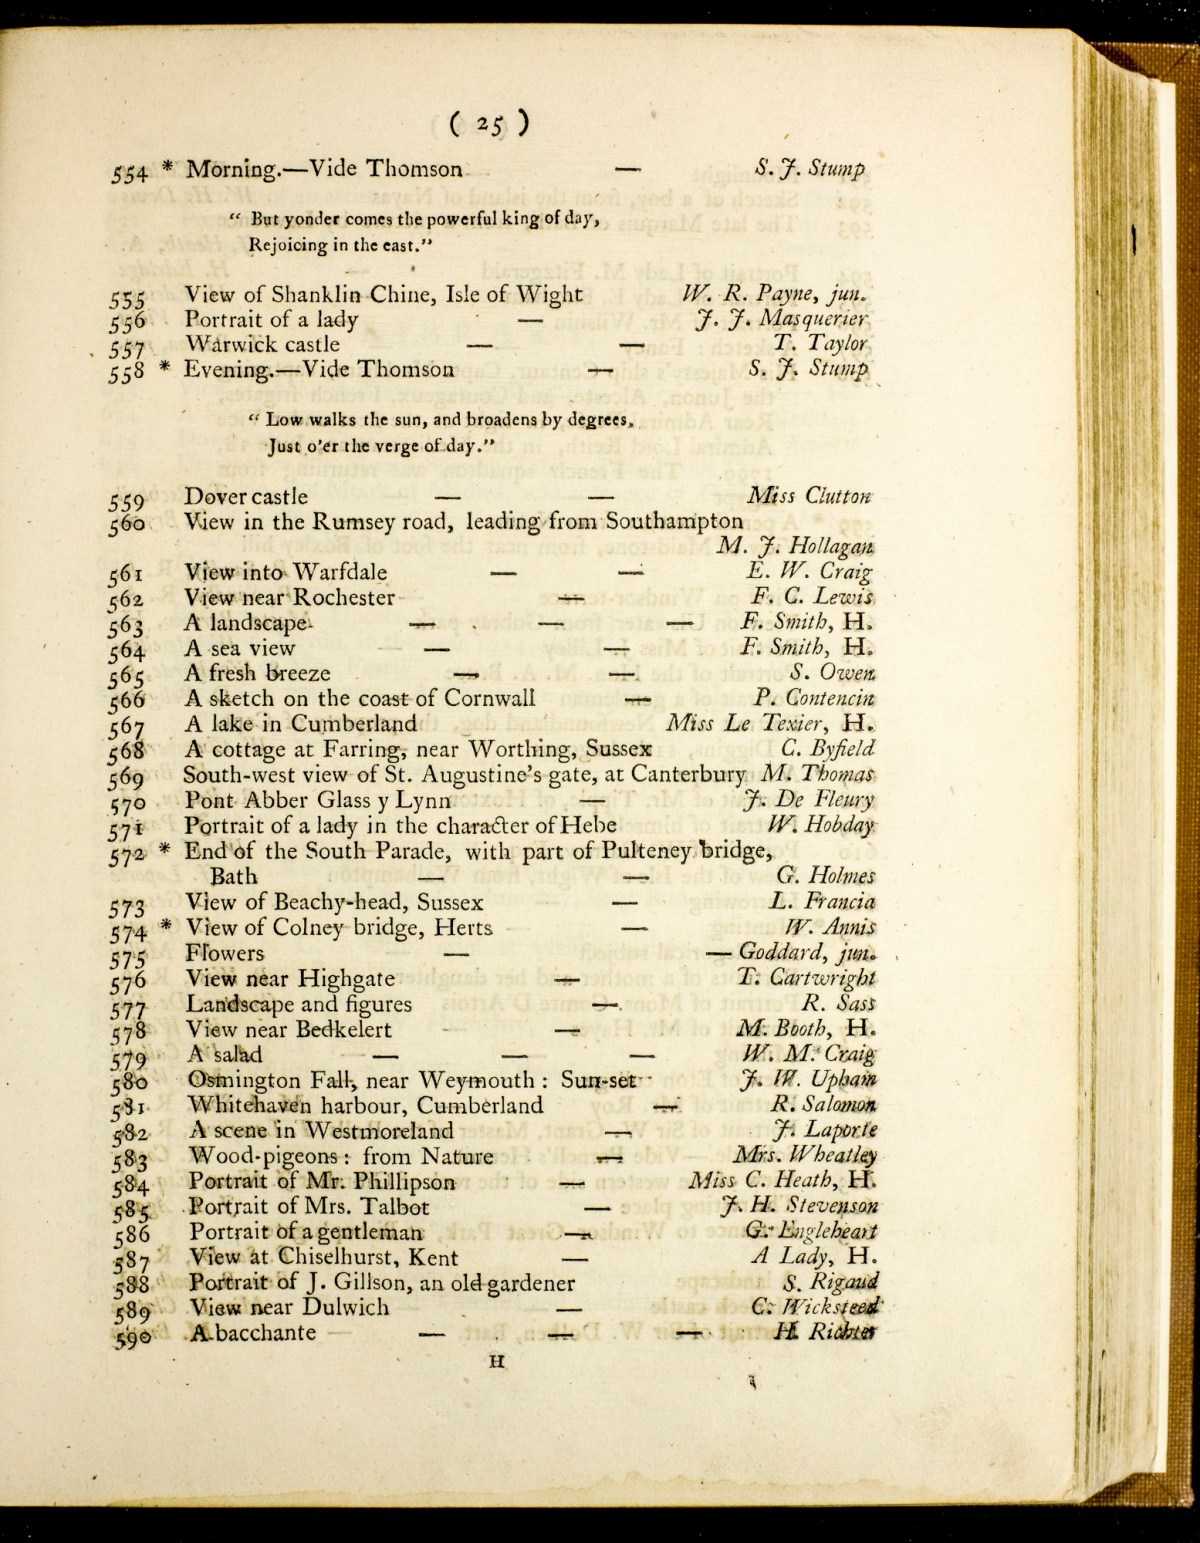 ( 25 )
554 * Morning.—Vide Thomson — S. J. Stump
“ But yonder comes the powerful king of day,
Rejoicing in the east.”
555 View of Shanklin Chine, Isle of Wight W. R. Payne, jun.
556 Portrait of a lady — J. J. Masquerier
557 Warwick castle — — T. Taylor
558 * Evening.—Vide Thomson — S. J. Stump
“ Low walks the sun, and broadens by degrees,
Just o'er the verge of day.”
559 Dover castle — — Miss Clutton
560 View in the Rumsey road, leading from Southampton
M. J. Hollagan
561 View into Warfdale — — E. W. Craig
562 View near Rochester — F. C. Lewis
563 A landscape — — — F. Smith, H.
564 A sea view — — F. Smith, H.
565 A fresh breeze — — S. Owen
566 A sketch on the coast of Cornwall — P. Contencin
567 A lake in Cumberland Miss Le Texier, H.
568 A cottage at Farring, near Worthing, Sussex C. Byfield
569 South-west view of St. Augustine's gate, at Canterbury M. Thomas
570 Pont Abber Glass y Lynn — J. De Fleury
571 Portrait of a lady in the character of Hebe W. Hobday
572 * End of the South Parade, with part of Pulteney bridge,
Bath — — G. Holmes
573 View of Beachy-head, Sussex — L. Francia
574 * View of Colney bridge, Herts — W. Annis
575 Flowers — — Goddard, jun.
576 View near Highgate — T. Cartwright
577 Landscape and figures — R. Sass
578 View near Bedkelert — M. Booth, H.
579 A salad — — — W. M. Craig
580 Osmington Fall, near Weymouth : Sun-set J. W. Upham
581 Whitehaven harbour, Cumberland — R. Salomon
582 A scene in Westmoreland — J. Laporte
583 Wood-pigeons : from Nature — Mrs. Wheatley
584 Portrait of Mr. Phillipson — Miss C. Heath, H.
585 Portrait of Mrs. Talbot — J. H. Stevenson
586 Portrait of a gentleman — G. Engleheart
587 View at Chiselhurst, Kent — A Lady, H.
588 Portrait of J. Gillson, an old gardener S. Rigaud
589 View near Dulwich — C. Wicksteed
590 A bacchante — — — H. Richter
H